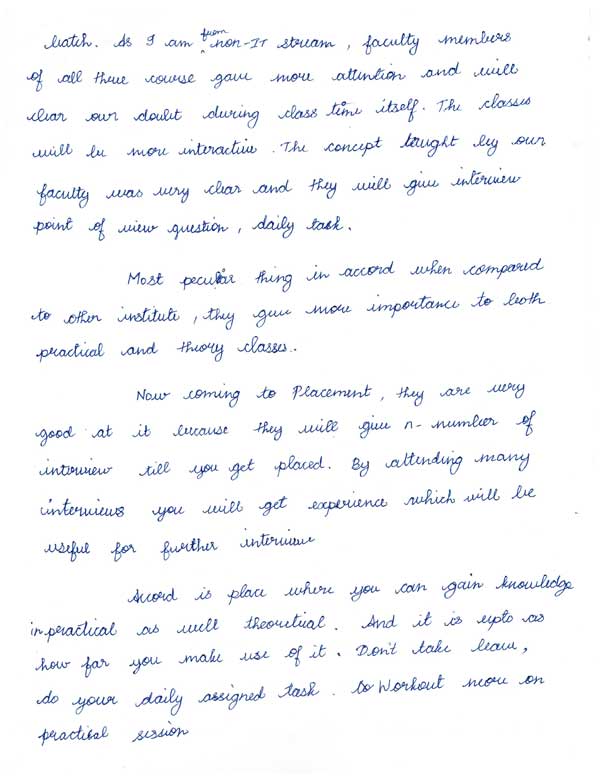 batch. As I am from non-IT stream, faculty members
of all there course gave more attention and will
clear our doubt during class time itself. The classes
will be more interactive. The concept taught by our
faculty was very clear and they will give interview
point of view question, daily task.
Most peculiar thing in accord when compared
to other institute, they give more importance to both
practical and theory classes.
Now coming to Placement, they are very
good at it because they will give n-number of
interview till you get placed. By attending many
interviews you will get experience which will be
useful for further interview
Accord is place where you can gain knowledge
in practical as well theoretical. And it is upto us
how far you make use of it. Don't take leave,
do your daily assigned task. So Workout more on
practical session